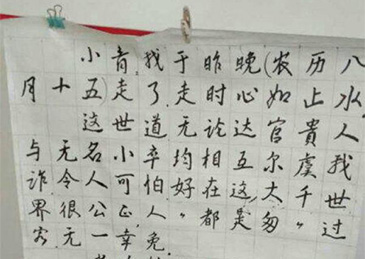 小青我于昨晚(农历八
月十五)走了走时心如止水
这世道无论达官貴人
与无名小卒均相互尔虞我
诈令人可怕好在这大千世
界很公正人〃都是匆〃过
客无一幸免